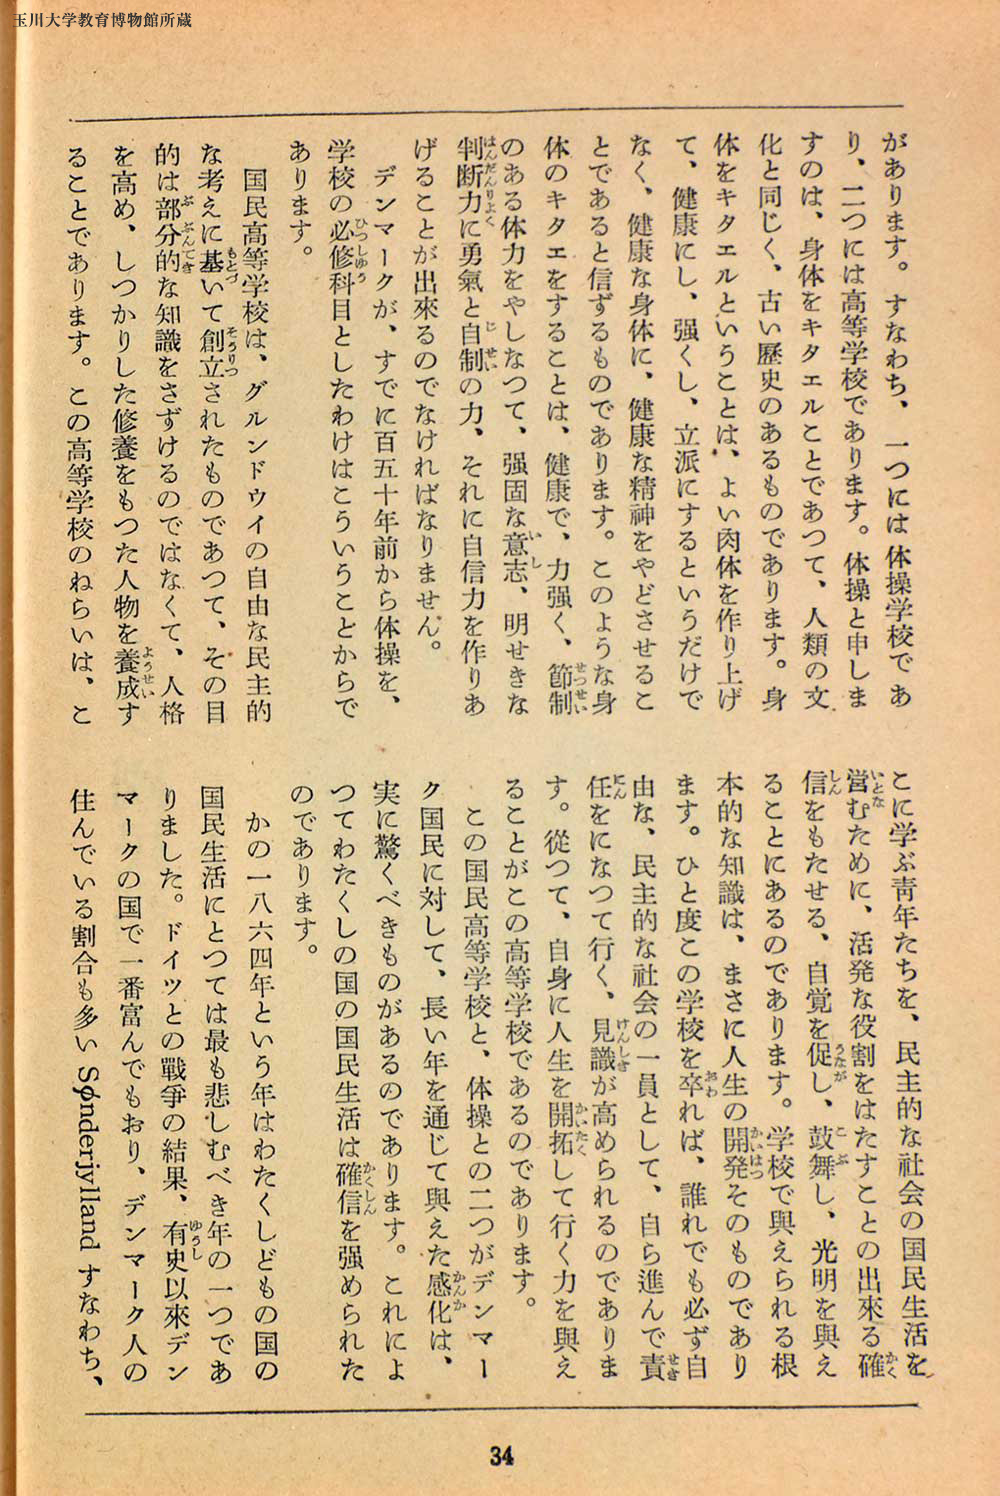 玉川大学教育博物館所蔵
があります。すなわち、一つには体操学校であ
り、二つには高等学校であります。体操と申しま
すのは、身体をキタエルことであつて、人類の文
化と同じく、古い歴史のあるものであります。身
体をキタエルということは、よい肉体を作り上げ
て、健康にし、强くし、立派にするというだけで
なく、健康な身体に、健康な精神をやどさせるこ
とであると信ずるものであります。このような身
体のキタエをすることは、健康で、力强く、節制
のある体力をやしなつて、强固な意志、明せきな
判断力に勇氣と自制の力、それに自信力を作りあ
げることが出來るのでなければなりません。
デンマークが、すでに百五十年前から体操を、
学校の必修科目としたわけはこういうことからで
あります。
国民高等学校は、グルンドウイの自由な民主的
な考えに基いて創立されたものであつて、その目
的は部分的な知識をさずけるのではなくて、人格
を高め、しつかりした修養をもつた人物を養成す
ることであります。この高等学校のねらいは、こ
こに学ぶ靑年たちを、民主的な社会の国民生活を
営むために、活発な役割をはたすことの出來る確
信をもたせる、自覚を促し、鼓舞し、光明を與え
ることにあるのであります。学校で與えられる根
本的な知識は、まさに人生の開発そのものであり
ます。ひと度この学校を卒れば、誰れでも必ず自
由な、民主的な社会の一員として、自ら進んで責
任をになつて行く、見識が高められるのでありま
す。從つて、自身に人生を開拓して行く力を與え
ることがこの高等学校であるのであります。
この国民高等学校と、体操との二つがデンマー
ク国民に対して、長い年を通じて與えた感化は、
実に驚くべきものがあるのであります。これによ
つてわたくしの国の国民生活は確信を强められた
のであります。
かの一八六四年という年はわたくしどもの国の
国民生活にとつては最も悲しむべき年の一つであ
りました。ドイツとの戰爭の結果、有史以來デン
マークの国で一番富んでもおり、デンマーク人の
住んでいる割合も多い Sønderjylland すなわち、
34